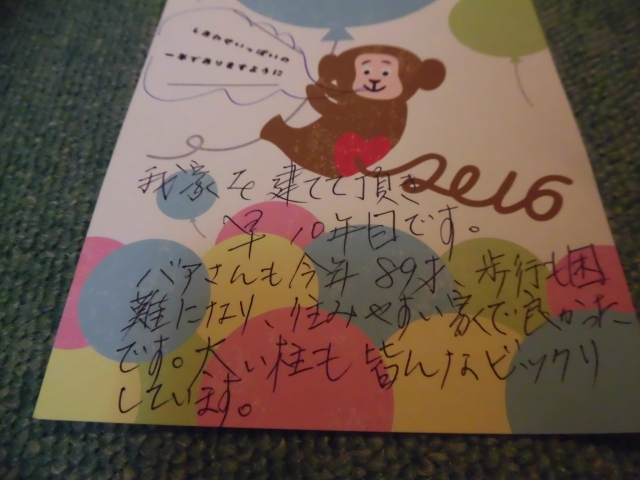 しあわせいっぱいの
一年でありますように
2016
我家を建てて頂き
早10年目です。
バアさんも今年89才、歩行も困
難になり、住みやすい家で良かった
です。太い柱も皆んなビックリ
しています。